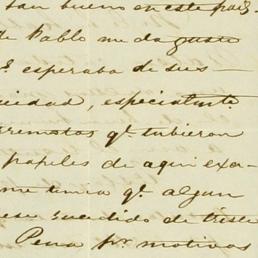 tan bueno en este país
de Pablo me da gusto
esperaba de sus
uidad, especialmte
rrematos qe tubieron
papeles de aqui exa-
me temia qe algun
ese sucedido de triste
Pena pr motivos